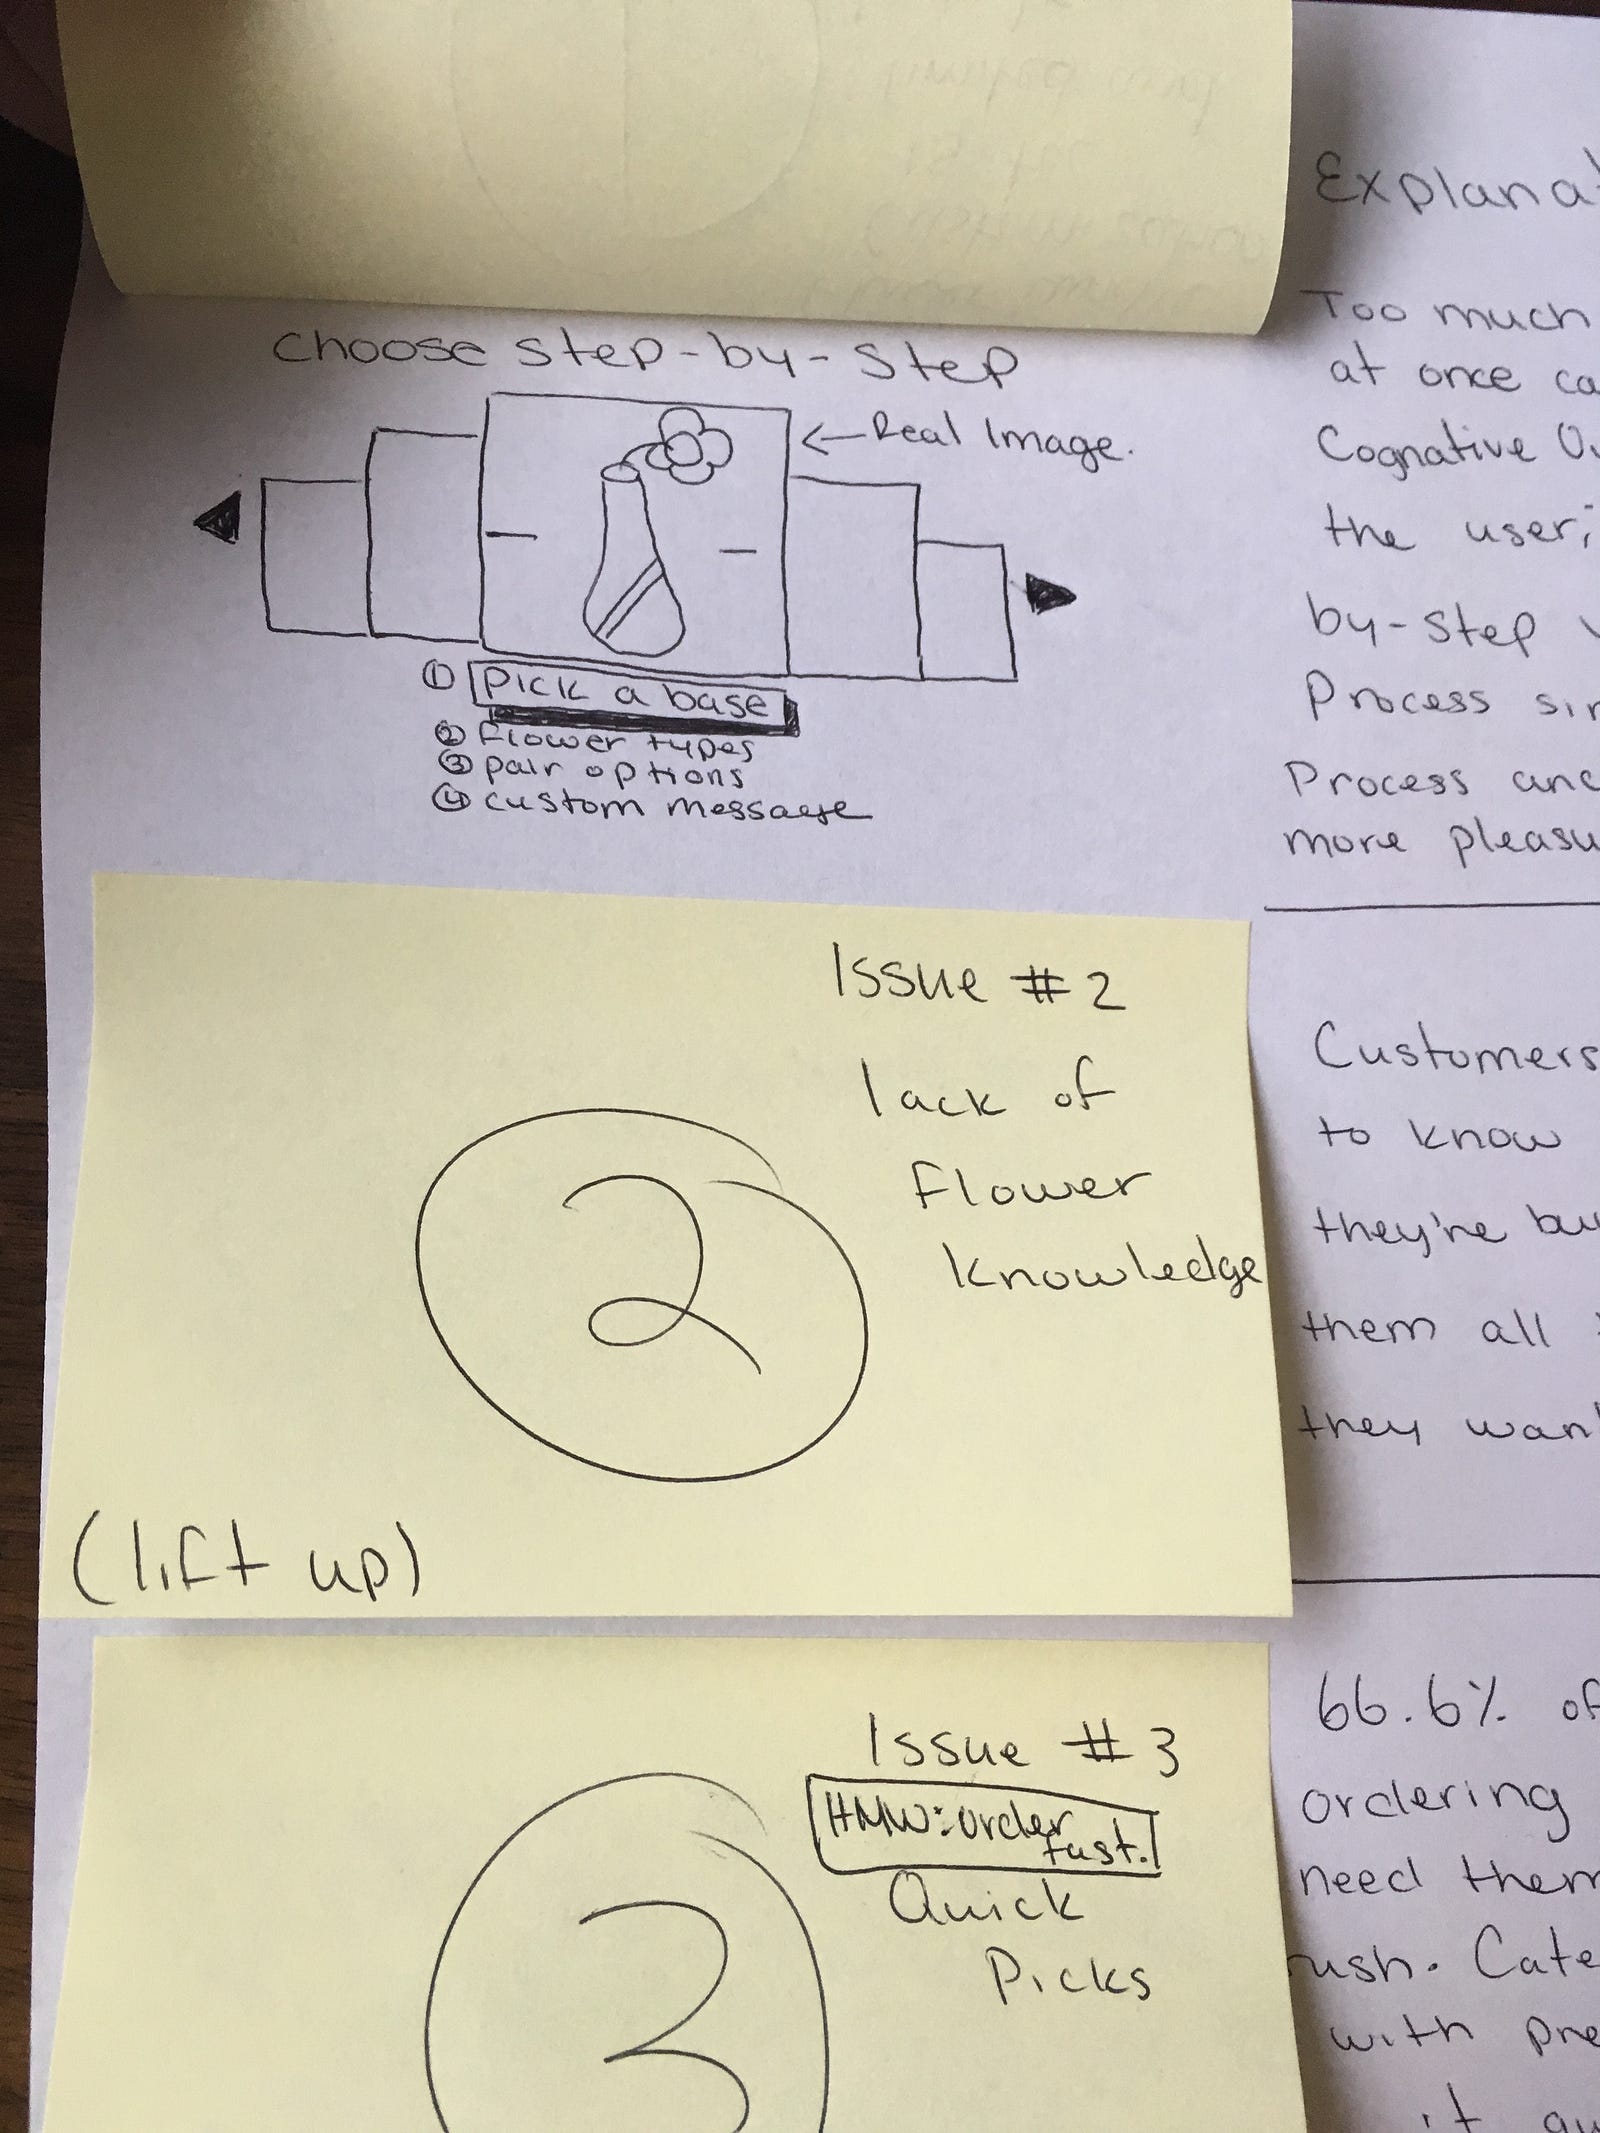 Choose step-by-step
←Real Image.
① Pick a base
② flower types
③ pair options
④ custom message
Issue #2
lack of
flower
knowledge
2
(lift up)
Issue #3
HMW: order
fast.
Quick
Picks
3
Too much
at once
Cognative
the user;
by-step
Process
Process
more
Customers
to know
they're
them all
they
66.6% of
ordering
need them
rush.
with